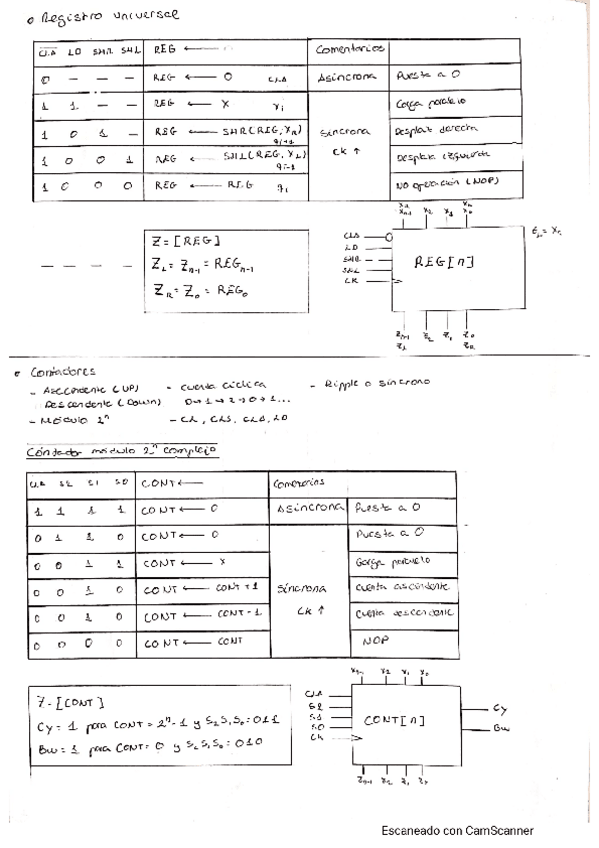 • Registro universal
CLR LD SHR SHL REG ←
Comentarios
0 — — — REG ← 0 CLR Asíncrona Puesta a 0
1 1 — — REG ← X Xi Carga paralelo
1 0 1 — REG ← SHR(REG, XR) qi+1 Síncrona Desplaz derecha
1 0 0 1 REG ← SHL(REG, XL) qi-1 CK ↑ Desplaz izquierda
1 0 0 0 REG ← REG qi NO operación (NOP)
— — — —
Z = [REG]
ZL = Zn-1 = REGn-1
ZR = Z0 = REG0
Xn-1 X2 X1 X0
CLR
LD
SHR
SHL
CK
REG[n]
Zn-1 Z2 Z1 Z0
ZL ZR
• Contadores
- Ascendente (UP) - Cuenta cíclica - Ripple o síncrono
Descendente (Down) 0→1→2→0→1...
- Módulo 2^n
Contador módulo 2^n completo
CLR S2 S1 S0 CONT ← Comentarios
1 1 1 1 CONT ← 0 Asíncrona Puesta a 0
0 1 1 0 CONT ← 0 Puesta a 0
0 0 1 1 CONT ← X Carga paralelo
0 0 1 0 CONT ← CONT + 1 Síncrona Cuenta ascendente
0 0 1 0 CONT ← CONT - 1 CK ↑ Cuenta descendente
0 0 0 0 CONT ← CONT NOP
Z = [CONT]
Cy = 1 para CONT = 2^n - 1 y S2S1S0 = 011
Bw = 1 para CONT = 0 y S2S1S0 = 010
Xn-1 X2 X1 X0
CLR
S2
S1
S0
CK
CONT[n]
Cy
Bw
Zn-1 Z2 Z1
Escaneado con CamScanner